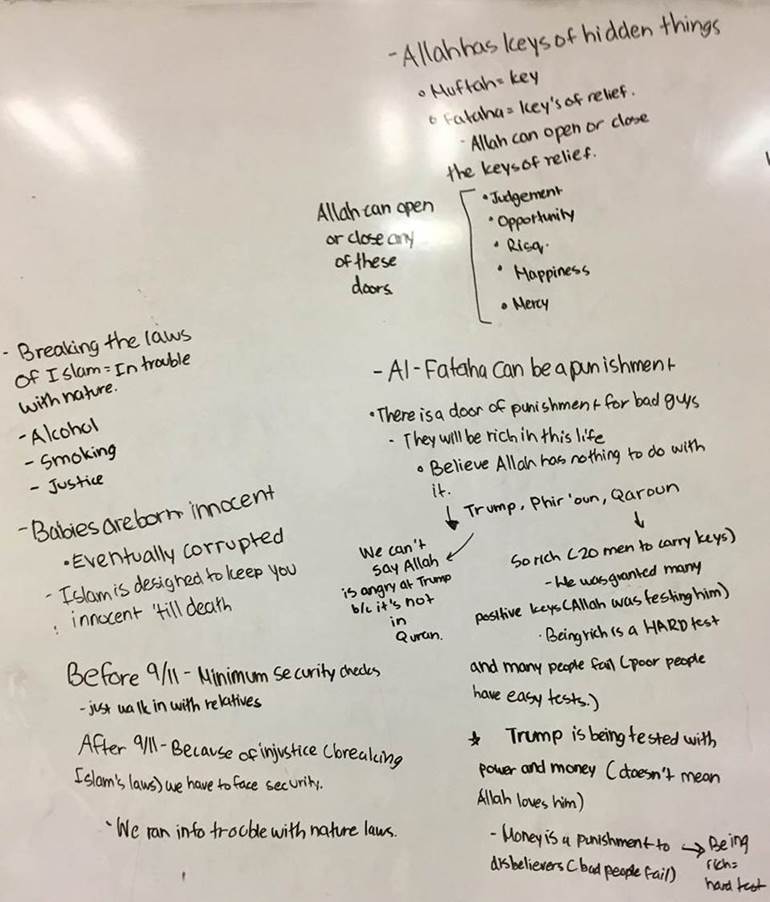 - Allah has keys of hidden things
• Muftah = key
• Fataha = key's of relief.
- Allah can open or close
the keys of relief.
Allah can open
or close any
of these
doors
• Judgement
• Opportunity
• Risq.
• Happiness
• Mercy
- Breaking the laws
of Islam = In trouble
with nature.
- Alcohol
- Smoking
- Justice
- Babies are born innocent
• Eventually corrupted
- Islam is designed to keep you
innocent 'till death
Before 9/11 - Minimum security checks
- just walk in with relatives
After 9/11 - Because of injustice (breaking
Islam's laws) we have to face security.
- We ran into trouble with nature laws.
- Al-Fataha can be a punishment
• There is a door of punishment for bad guys
- They will be rich in this life
• Believe Allah has nothing to do with
it.
↓ Trump, Phir'oun, Qaroun
We can't
say Allah
is angry at Trump
b/c it's not
in
Quran.
So rich (20 men to carry keys)
- He was granted many
positive keys (Allah was testing him)
· Being rich is a HARD test
and many people fail (poor people
have easy tests.)
* Trump is being tested with
power and money (doesn't mean
Allah loves him)
- Money is a punishment to → Being
disbelievers (bad people fail) rich =
hard test